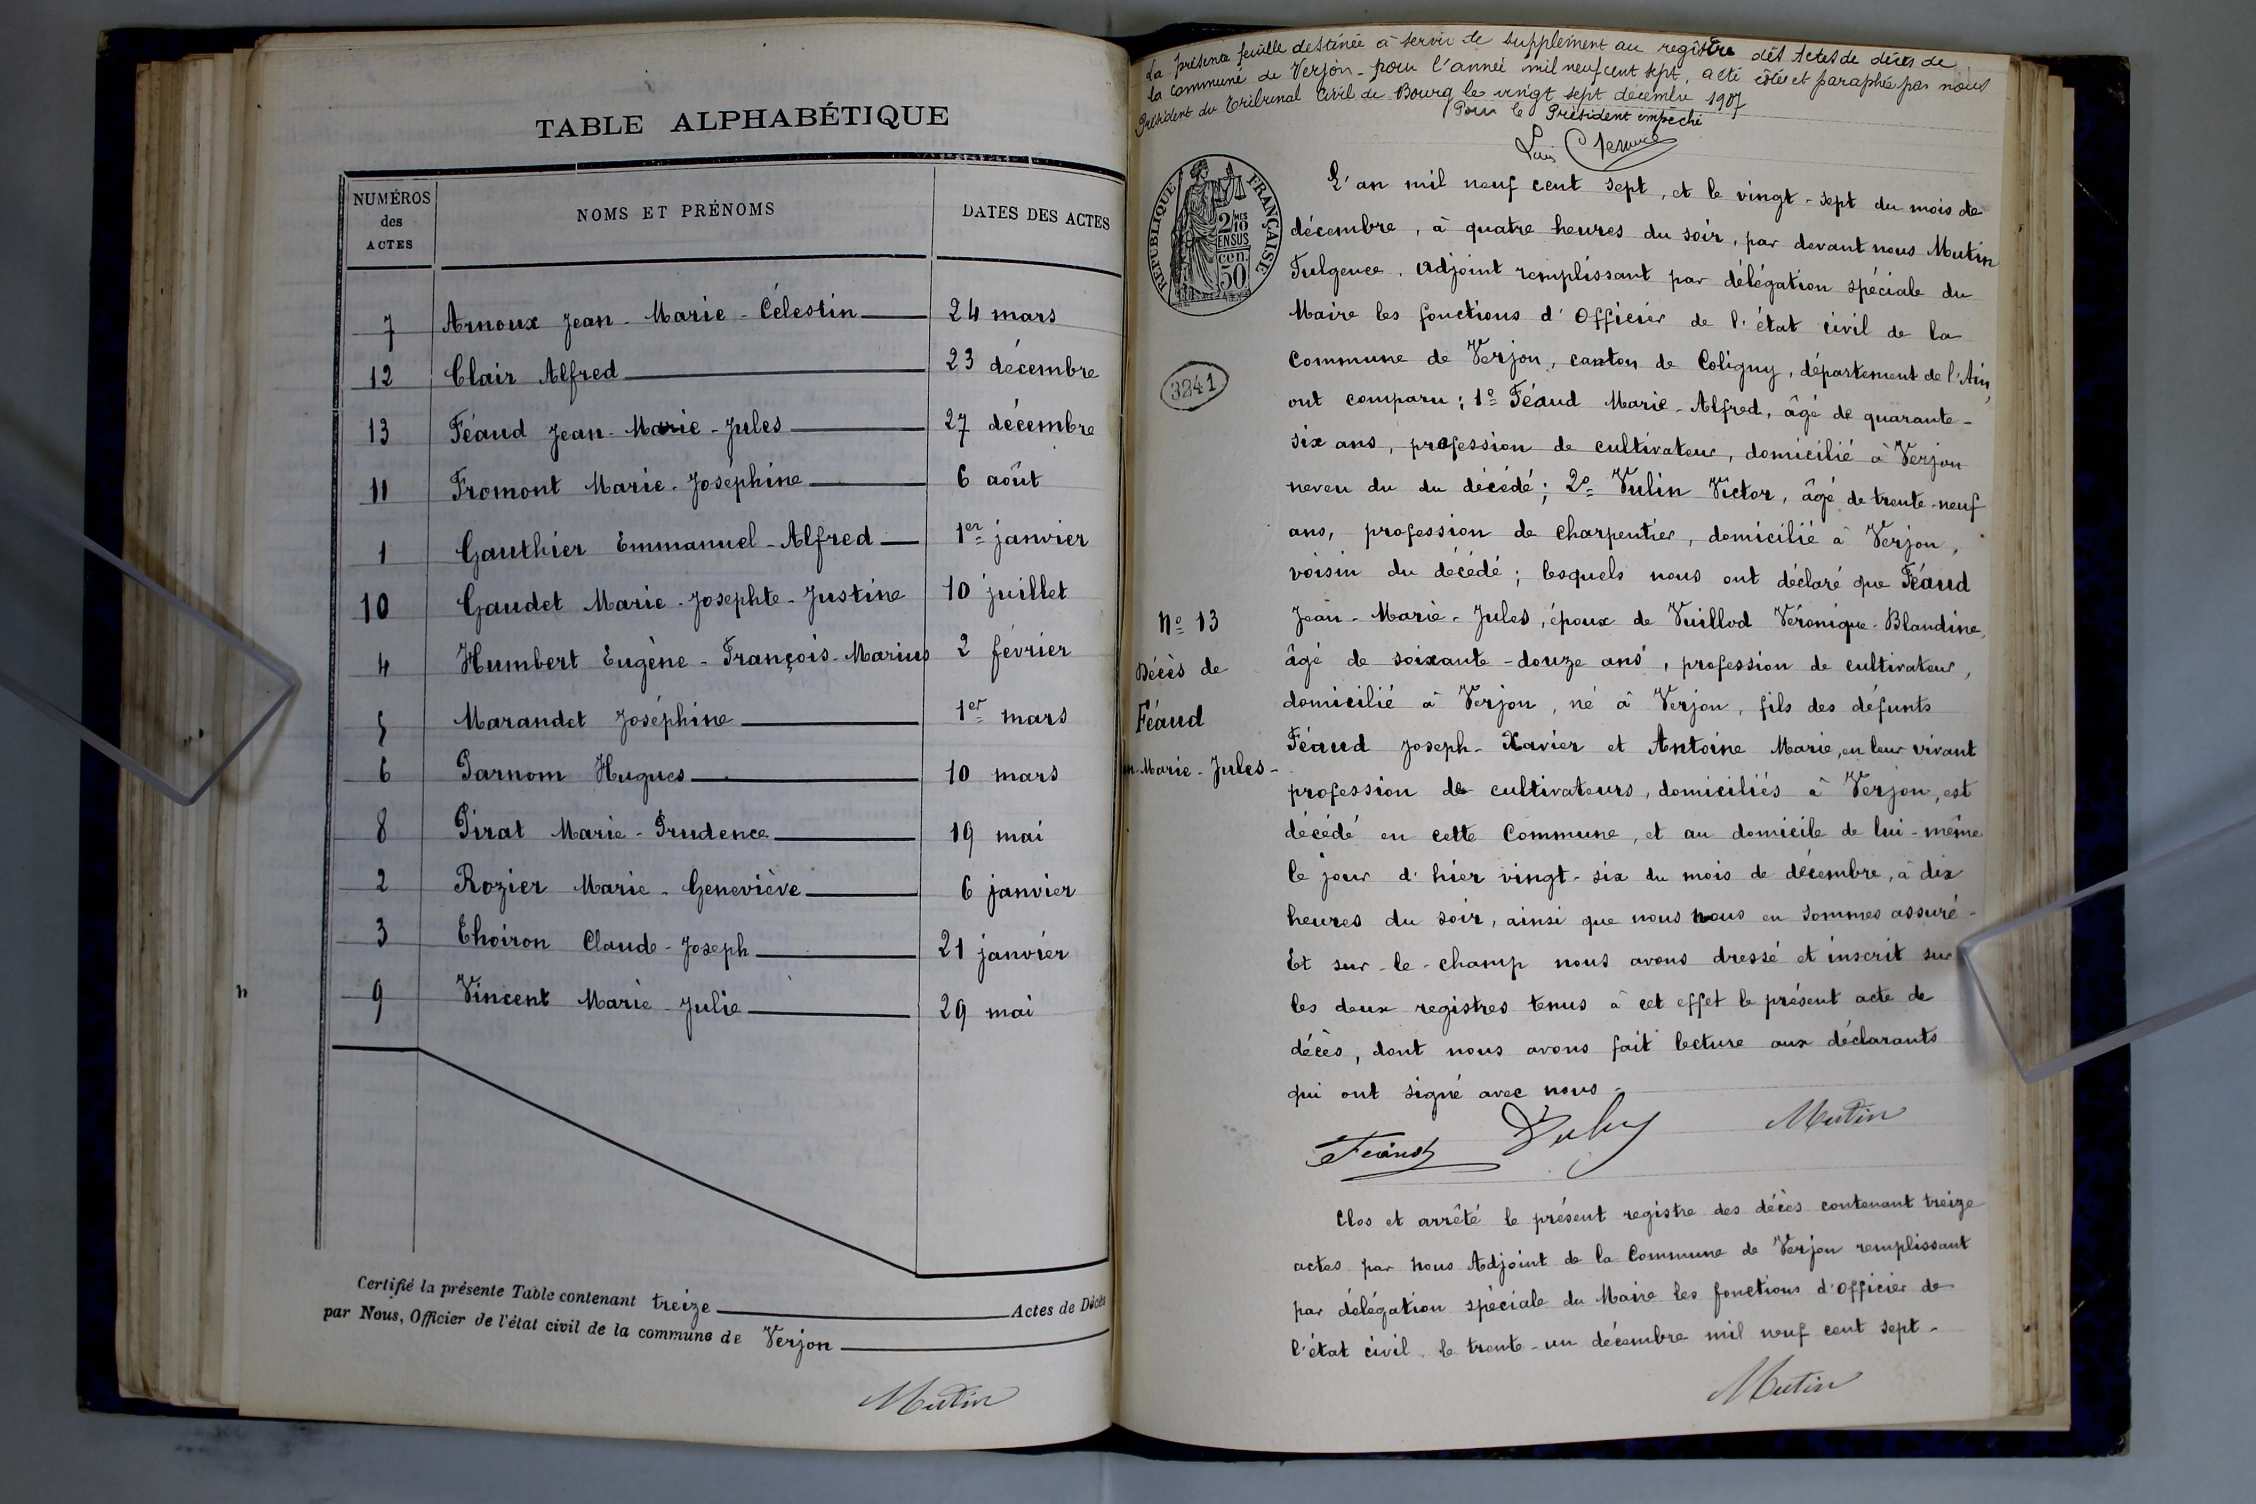 TABLE ALPHABÉTIQUE
NUMÉROS des ACTES NOMS ET PRÉNOMS DATES DES ACTES
7 Arnoux Jean-Marie-Célestin 24 mars
12 Clair Alfred 23 décembre
13 Féaud Jean-Marie-Jules 27 décembre
11 Fromont Marie-Joséphine 6 août
1 Gauthier Emmanuel-Alfred 1er janvier
10 Gaudet Marie-Josephte-Justine 10 juillet
4 Humbert Eugène-François-Marius 2 février
5 Marandet Joséphine 1er mars
6 Parnom Hugues 10 mars
8 Pirat Marie-Prudence 19 mai
2 Rozier Marie-Geneviève 6 janvier
3 Thoiron Claude-Joseph 21 janvier
9 Vincent Marie-Julie 29 mai
Certifié la présente Table contenant treize Actes de Décès
par Nous, Officier de l'état civil de la commune de Verjon
Mutin
La présente feuille destinée à servir de supplément au registre des Actes de décès de
la commune de Verjon - pour l'année mil neuf cent sept, a été côtée et paraphée par nous
Président du Tribunal Civil de Bourg le vingt sept décembre 1907
Pour le Président empêché
RÉPUBLIQUE FRANÇAISE
2/10 EN SUS
50 cen.
3241
No 13
Décès de
Féaud
Marie-Jules-
L'an mil neuf cent sept, et le vingt-sept du mois de
décembre, à quatre heures du soir, par devant nous Mutin
Fulgence, Adjoint remplissant par délégation spéciale du
Maire les fonctions d'Officier de l'état civil de la
Commune de Verjon, canton de Coligny, département de l'Ain,
ont comparu; 1o Féaud Marie-Alfred, âgé de quarante-
six ans, profession de cultivateur, domicilié à Verjon
neveu du du décédé; 2o Vulin Victor, âgé de trente-neuf
ans, profession de charpentier, domicilié à Verjon,
voisin du décédé; lesquels nous ont déclaré que Féaud
Jean-Marie-Jules, époux de Vuillod Véronique-Blandine,
âgé de soixante-douze ans, profession de cultivateur,
domicilié à Verjon, né à Verjon, fils des défunts
Féaud Joseph-Xavier et Antoine Marie, en leur vivant
profession de cultivateurs, domiciliés à Verjon, est
décédé en cette Commune, et au domicile de lui-même
le jour d'hier vingt-six du mois de décembre, à dix
heures du soir, ainsi que nous nous en sommes assuré-
Et sur-le-champ nous avons dressé et inscrit sur
les deux registres tenus à cet effet le présent acte de
décès, dont nous avons fait lecture aux déclarants
qui ont signé avec nous-
Féaud Mutin
Clos et arrêté le présent registre des décès contenant treize
actes par nous Adjoint de la Commune de Verjon remplissant
par délégation spéciale du Maire les fonctions d'Officier de
l'état civil le trente-un décembre mil neuf cent sept-
Mutin